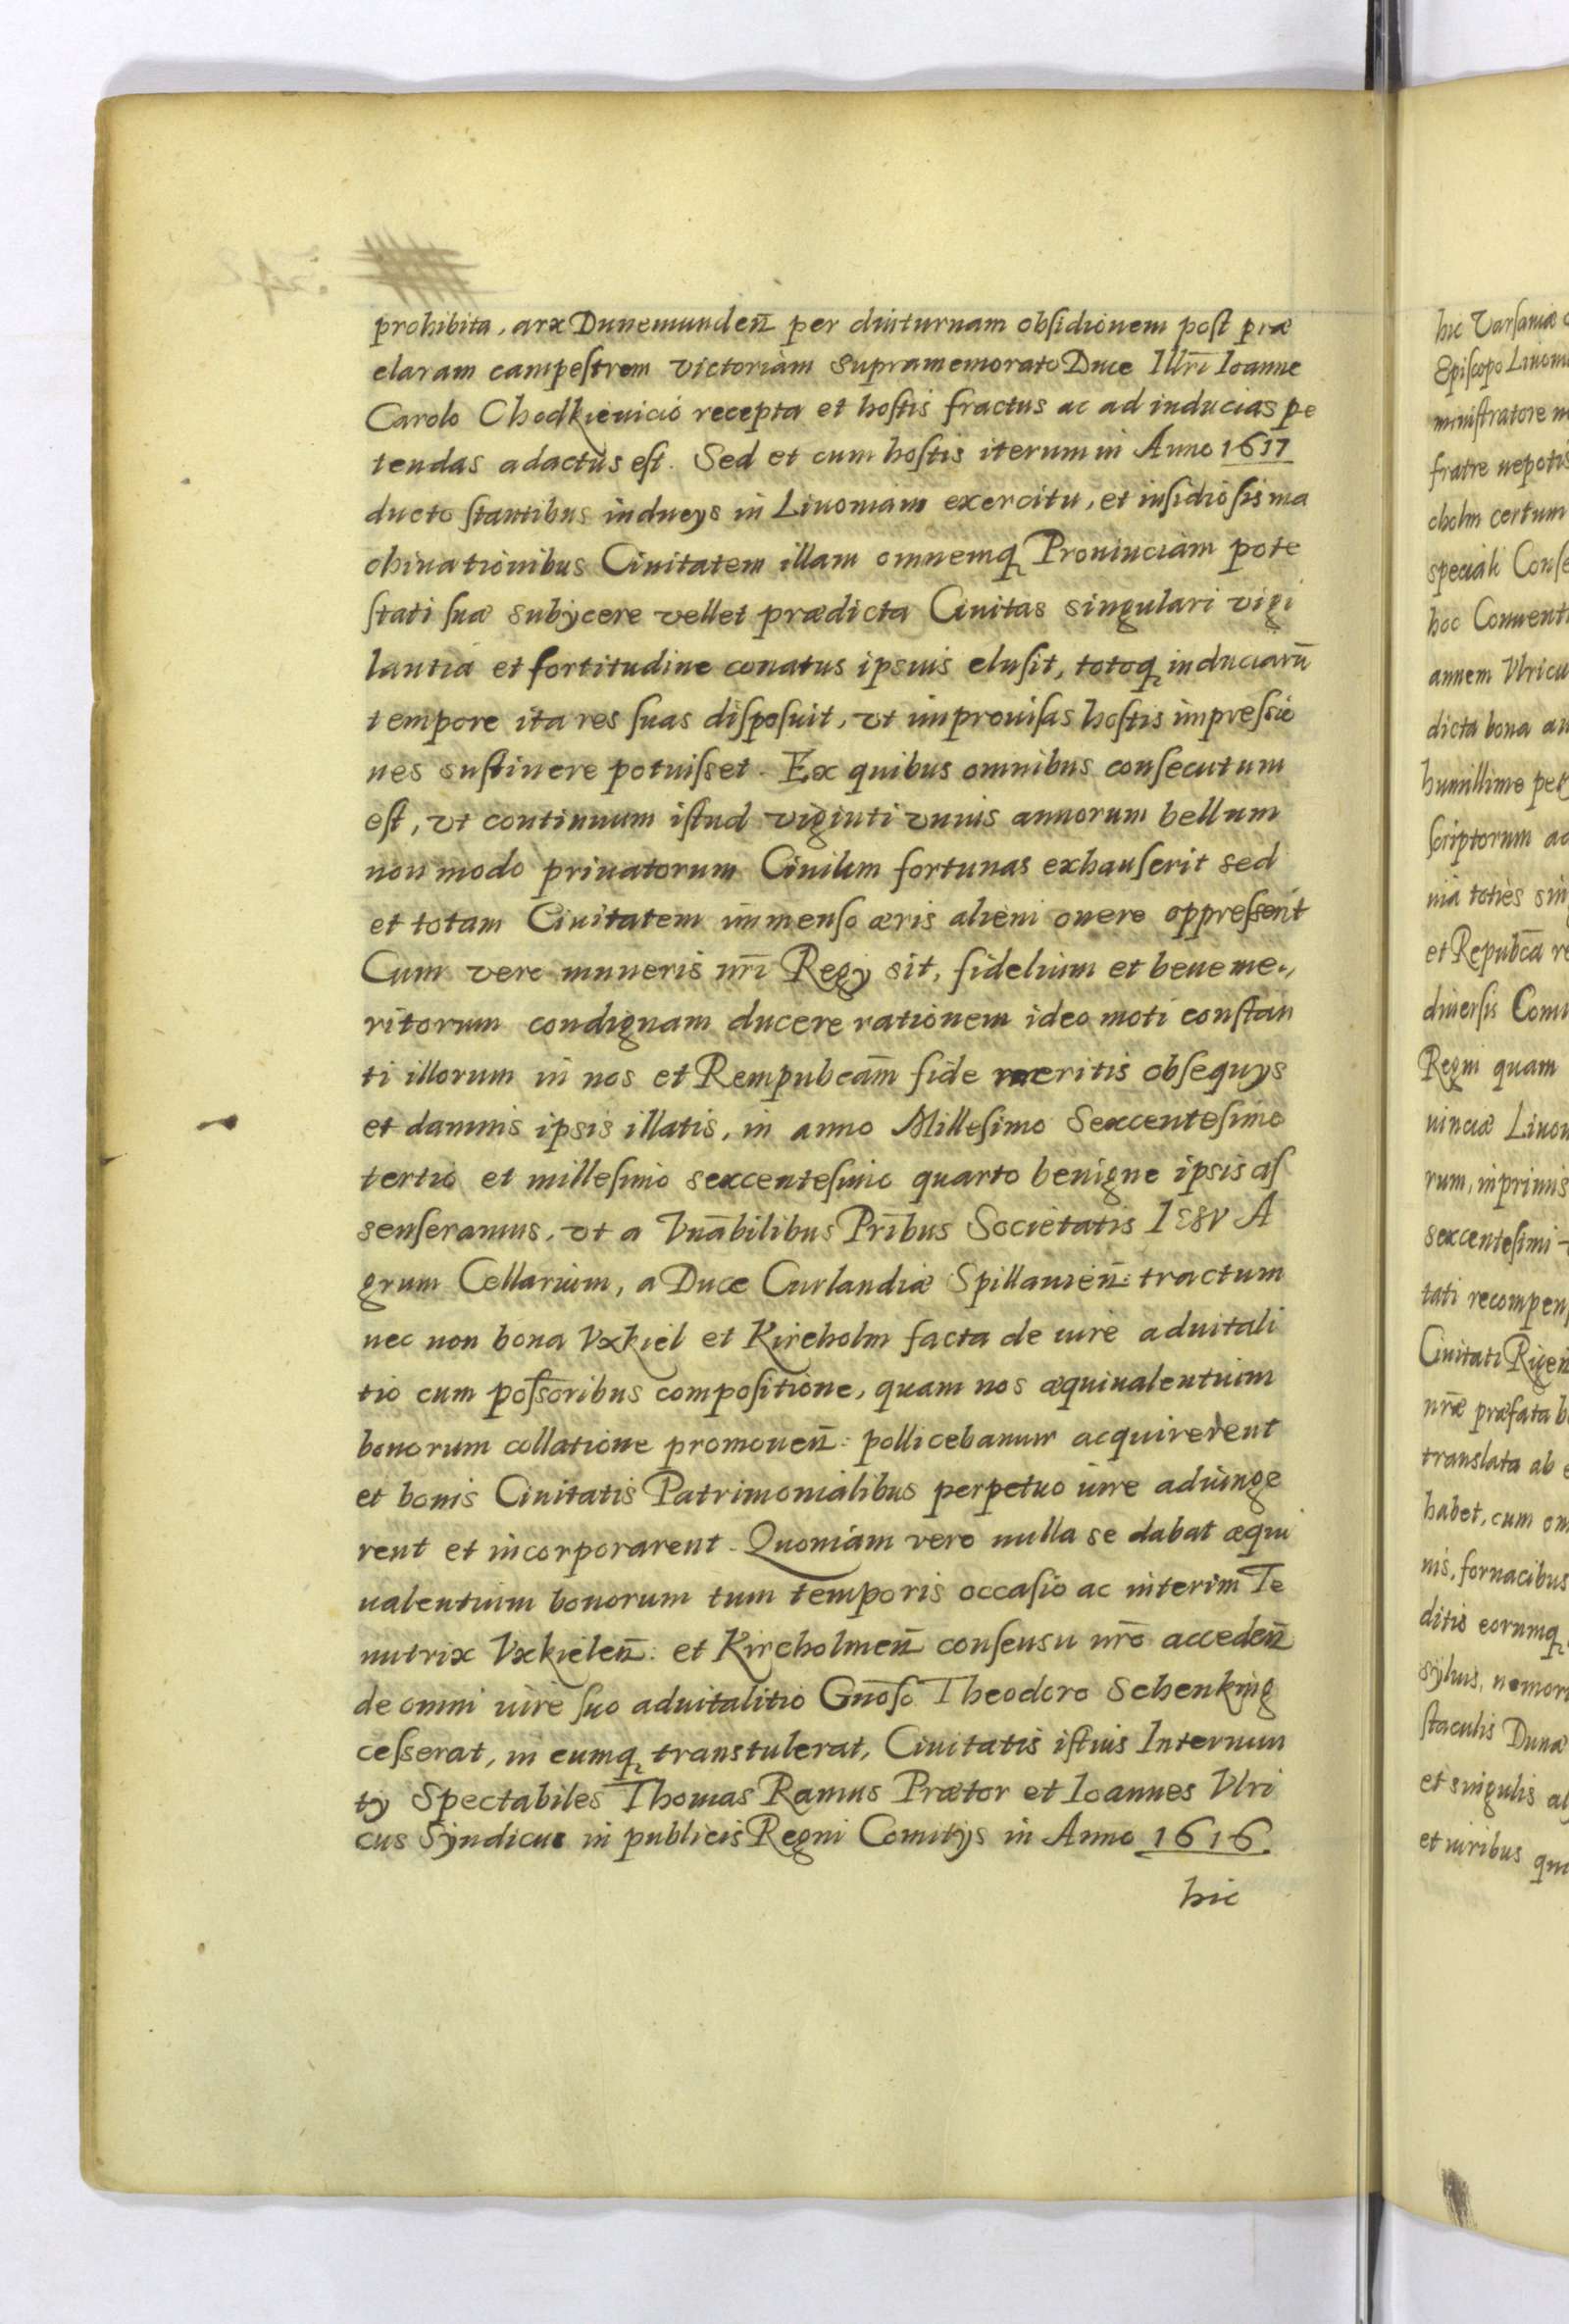 prohibita, arx Dunemunden̄ per diuturnam obsidionem post præ
claram campestrem victoriam supramemorato Duce Illrī Ioanne
Carolo Chodkieuicio recepta et hostis fractus ac ad inducias pe
tendas adactus est. Sed et cum hostis iterum in Anno 1617
ducto stantibus inducys in Liuoniam exercitu, et insidiosis ma
chinationibus Ciuitatem illam omnemq Prouinciam pote
stati suæ subycere vellet prædicta Ciuitas singulari vigi
lantia et fortitudine conatus ipsuis elusit, totoq induciarū
tempore ita res suas disposuit, vt improuisas hostis impressio
nes sustinere potuisset. Ex quibus omnibus consecutum
est, vt continuum istud viginti vnius annorum bellum
non modo priuatorum Ciuium fortunas exhauserit sed
et totam Ciuitatem immenso æris alieni onere oppresserit
Cum vero muneris nrī Regy sit, fidelium et beneme,
ritorum condignam ducere rationem ideo moti constan
ti illorum in nos et Rempubcām fide meritis obsequys
et damnis ipsis illatis, in anno Millesimo Sexcentesimo
tertio et millesimo sexcentesimo quarto benigne ipsis as
senseramus, vt a Vnābilibus Prībus Societatis IESV A
grum Cellarium, a Duce Curlandiæ Spillauien̄: tractum
nec non bona Vxkiel et Kircholm facta de iure aduitali
tio cum possōribus compositione, quam nos æquiualentium
bonorum collatione promouen̄: pollicebamur acquirerent
et bonis Ciuitatis Patrimonialibus perpetuo iure adiunge
rent et incorporarent. Quoniam vero nulla se dabat æqui
ualentium bonorum tum temporis occasio ac interim Te
nutrix Vxkielen̄: et Kircholmen̄ consensu nrō acceden̄
de omni iure suo aduitalitio Gnōso Theodoro Schenking
cesserat, in eumq transtulerat, Ciuitatis istius Internun
ty Spectabiles Thomas Ramus Prætor et Ioannes Vlri
cus Syndicus in publicis Regni Comitys in Anno 1616.
hic
hic Varsauiæ
Episcopo Liuon
ministratore
fratre nepotis
cholm certum
speciali Conse
hoc Conuent
annem Vlricu
dicta bona
humillime pet
scriptorum
nia toties sin
et Repubcā re
diuersis Comi
Regni quam
uinciæ Liuon
rum, inprimis
sexcentesimi
tati recompen
Ciuitati Rigen̄
nrǣ præfata b
translata ab
habet, cum om
nis, fornacibus
ditis eorumq
syluis, nemor
staculis Dunæ
et singulis al
et iuribus qu